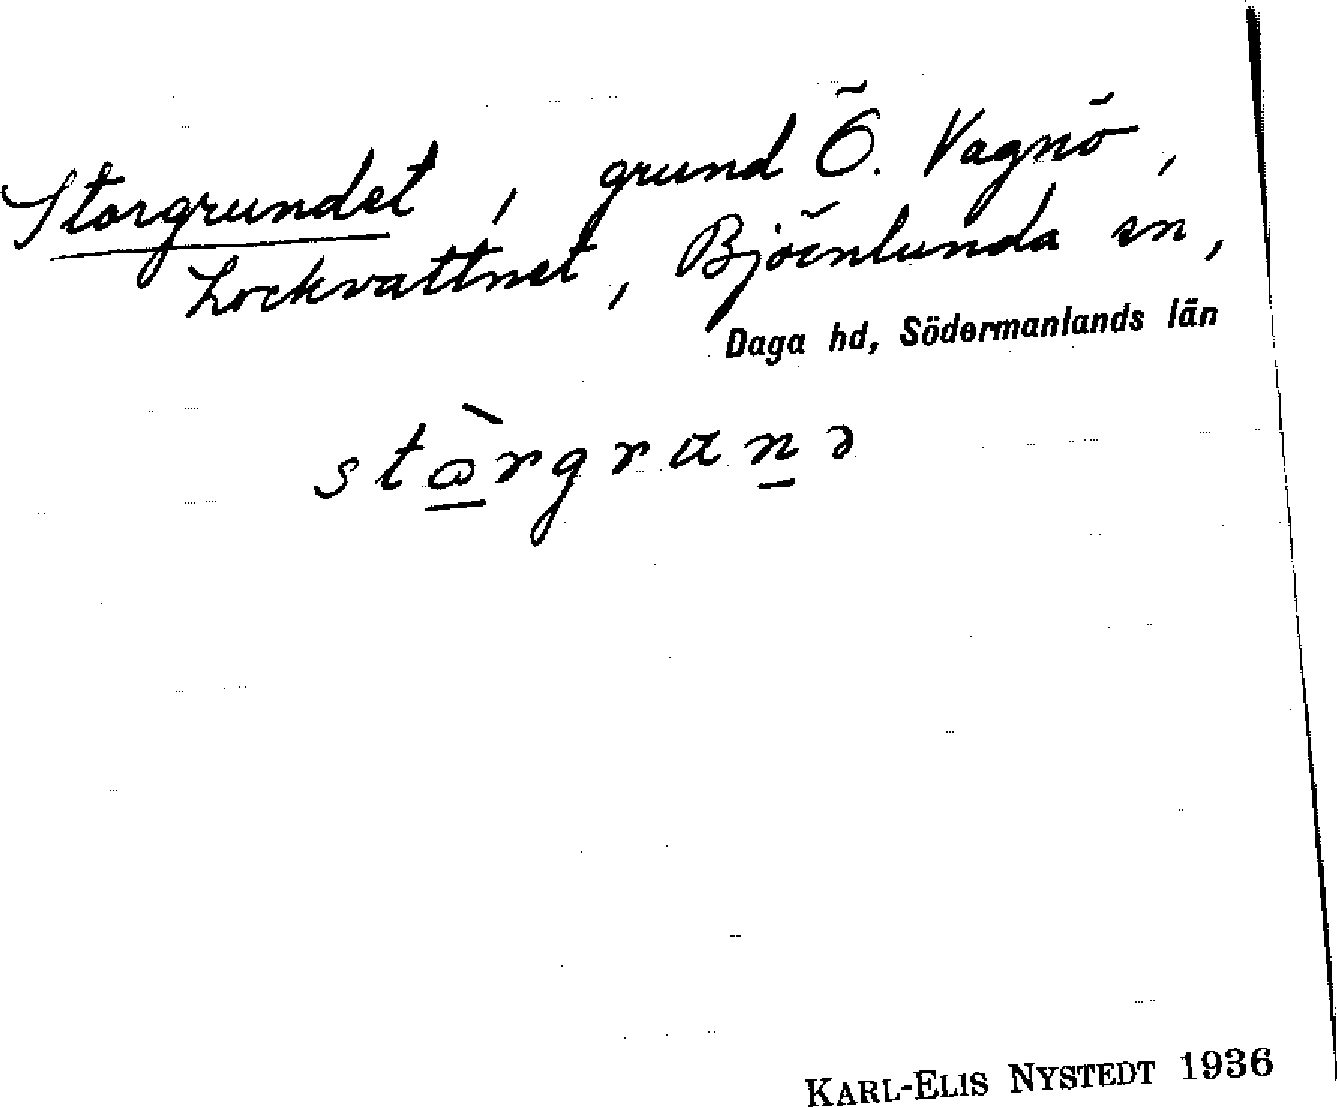 Storgrundet, grund Ö. Vagnö,
Lockvattnet, Björnlunda sn,
Daga hd, Södermanlands län
stὼrgrαn̲ə
KARL-ELIS NYSTEDT 1936